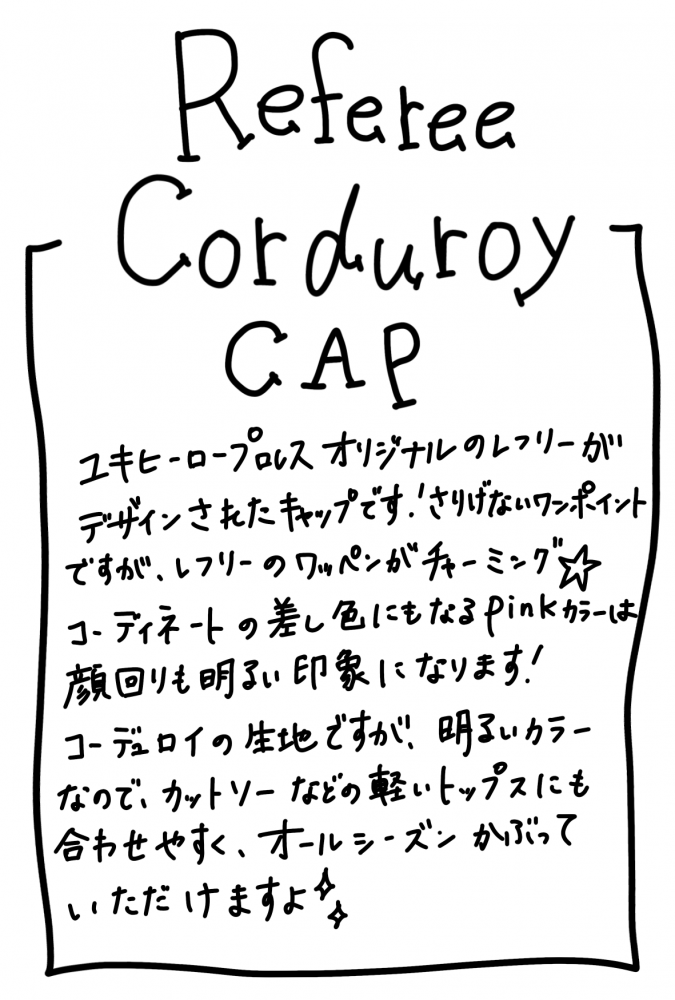 Referee
Corduroy
CAP
ユキヒーロープロレス オリジナルのレフリーが
デザインされたキャップです!さりげないワンポイント
ですが、レフリーのワッペンがチャーミング☆
コーディネートの差し色にもなるpinkカラーは
顔回りも明るい印象になります!
コーデュロイの生地ですが、明るいカラー
なので、カットソーなどの軽いトップスにも
合わせやすく、オールシーズンかぶって
いただけますよ